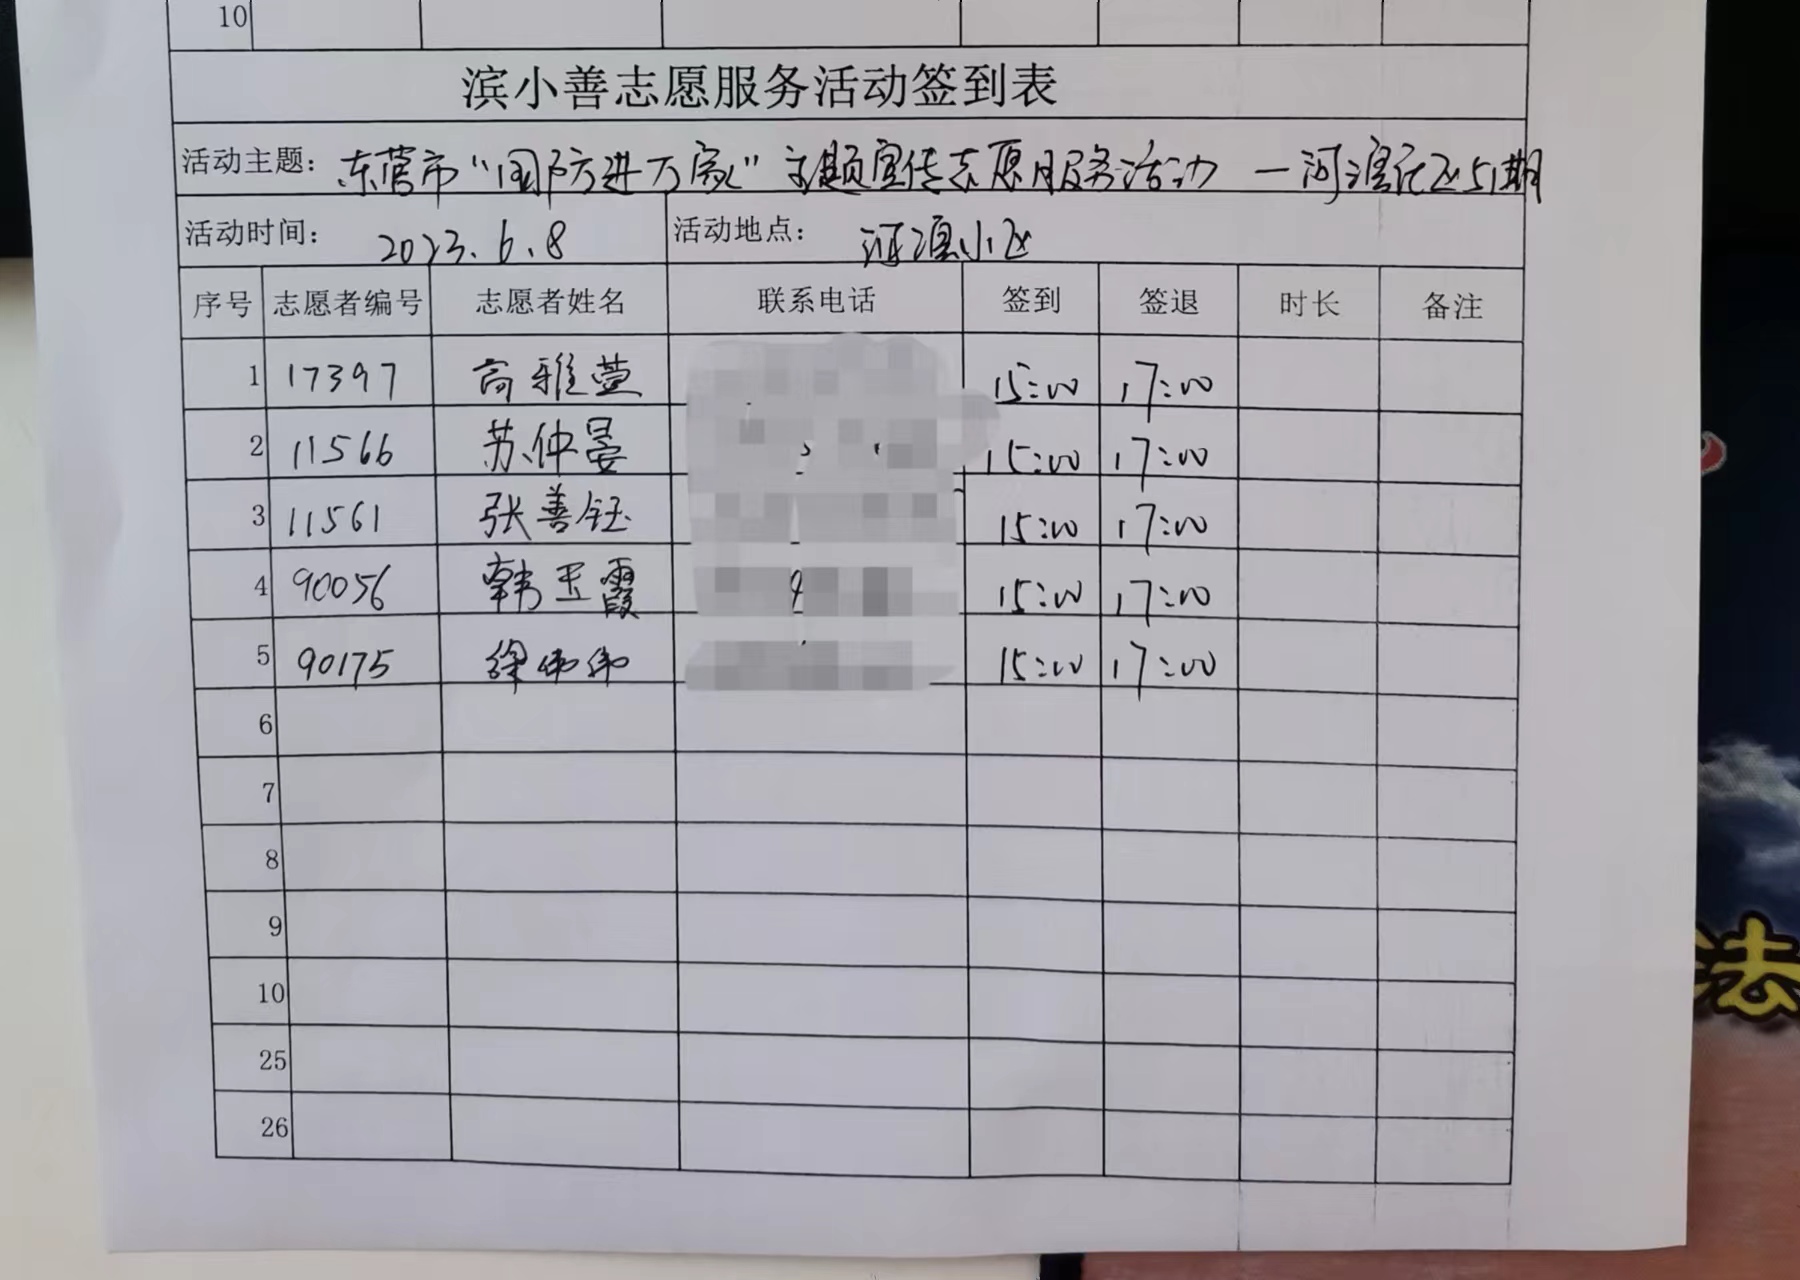 10
滨小善志愿服务活动签到表
活动主题：东营市“国防进万家”主题宣传志愿服务活动 — 河滨社区51期
活动时间： 2023.6.8 活动地点： 河滨小区
序号 志愿者编号 志愿者姓名 联系电话 签到 签退 时长 备注
1 17397 高雅萱 15:00 17:00
2 11566 苏仲晏 15:00 17:00
3 11561 张善钰 15:00 17:00
4 90056 韩玉霞 15:00 17:00
5 90175 徐伟伟 15:00 17:00
6
7
8
9
10
25
26
法